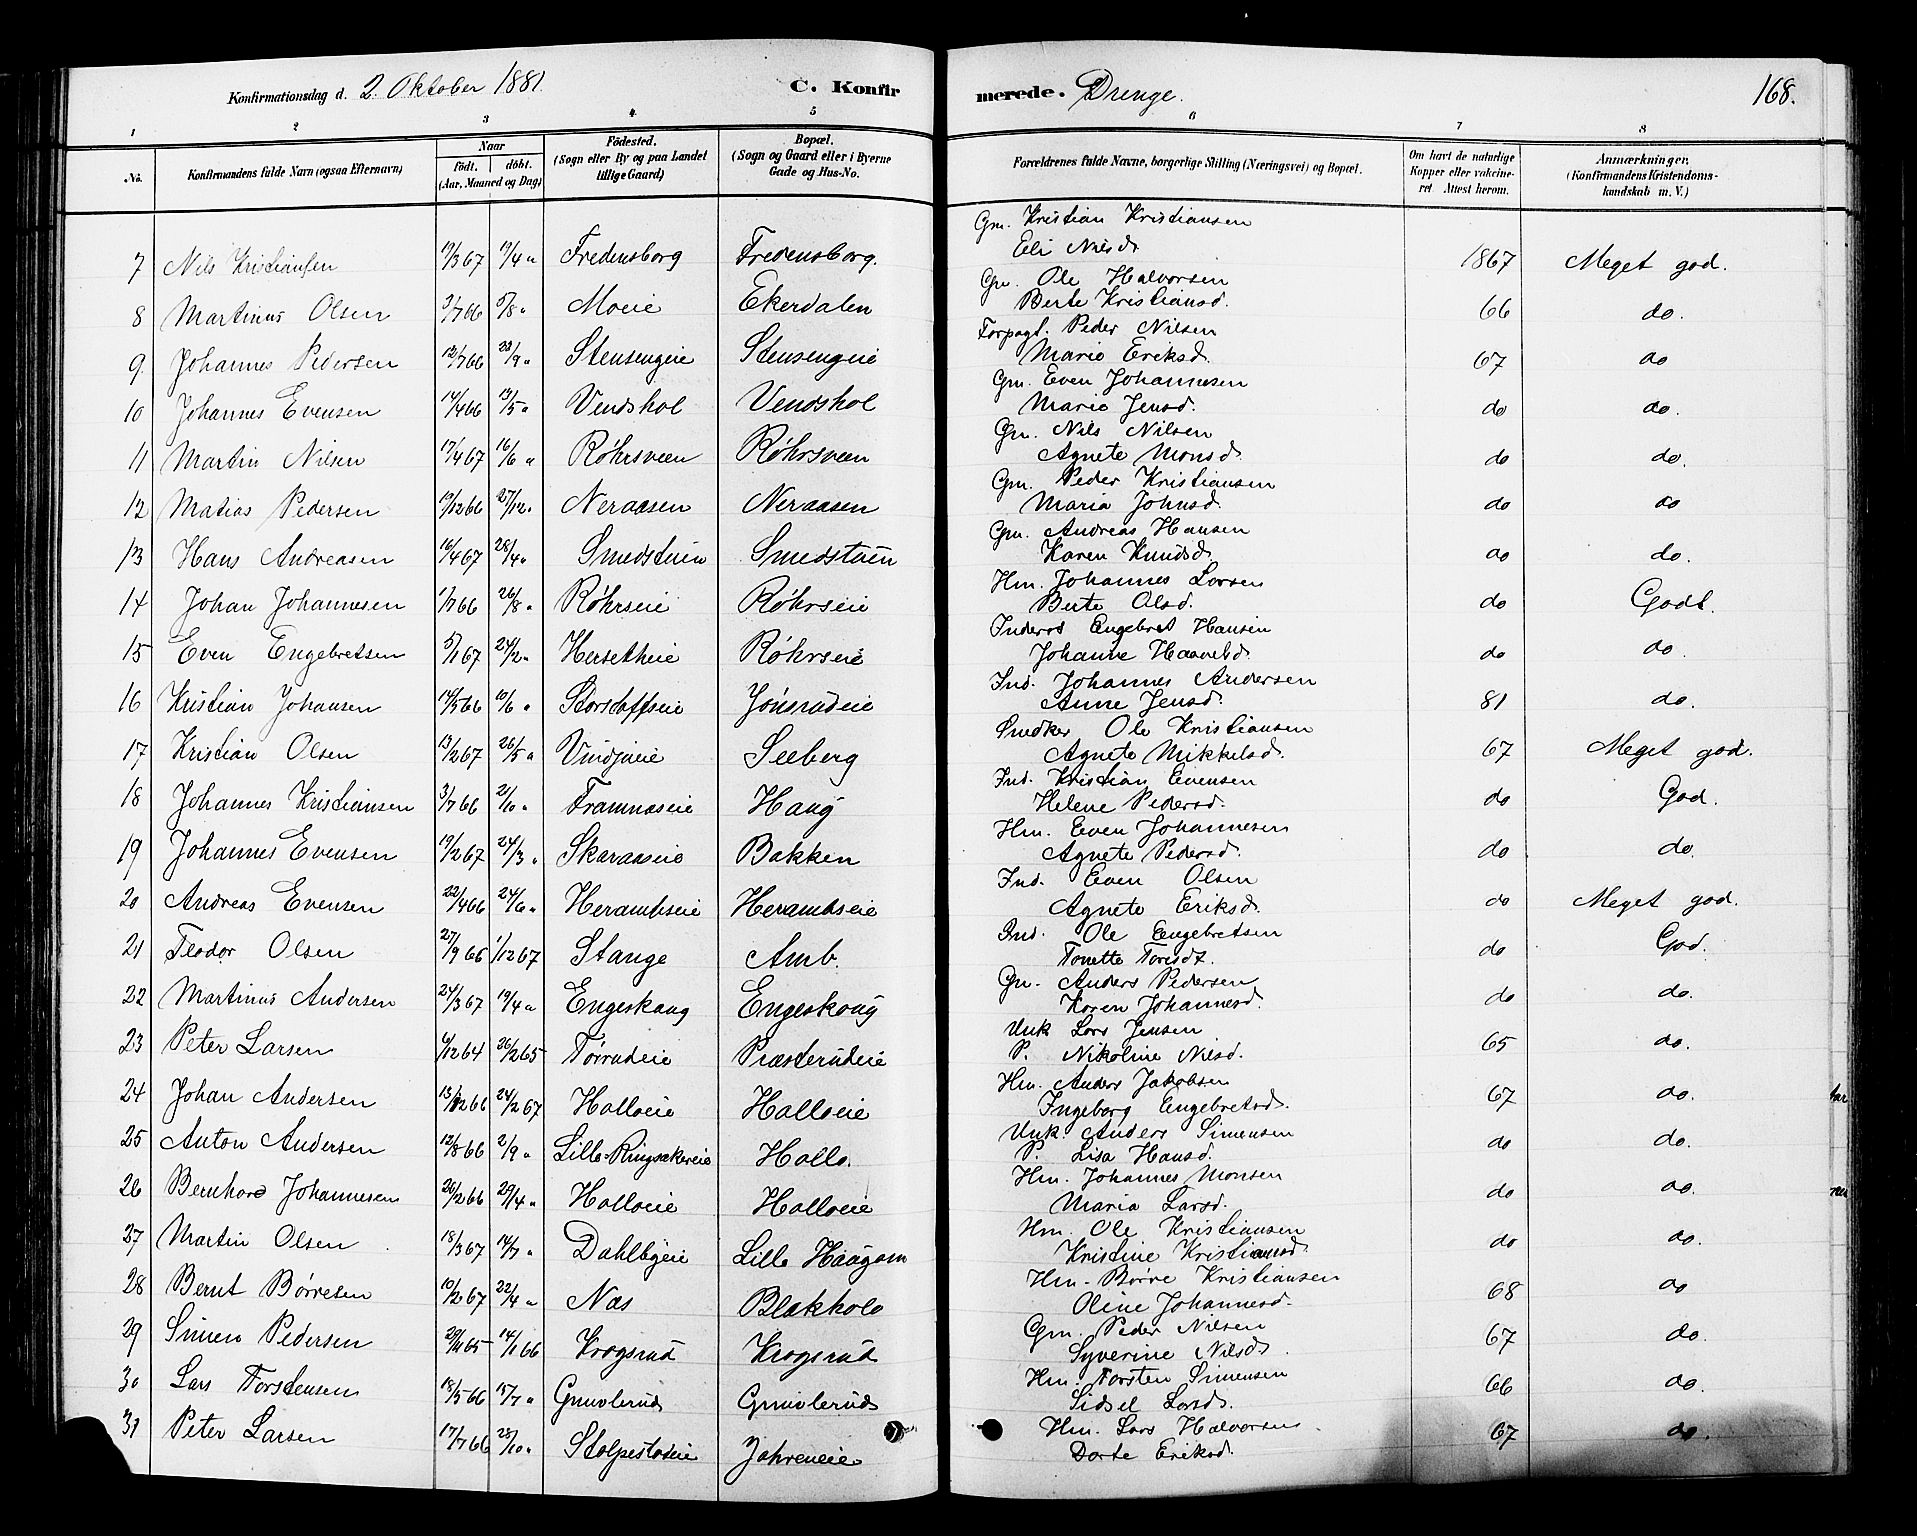 Konfirmationsdag d. 2. Oktober 1881. C. Konfirmerede. Drenge. 168.
1 2 3 4 5 6 7 8
No. Konfirmandens fulde Navn (ogsaa Efternavn) Naar födt. döbt. (Aar, Maaned og Dag) Födested. (Sogn eller By og paa Landet tillige Gaard) Bopæl. (Sogn og Gaard eller i Byerne Gade og Hus-No. Forældrenes fulde Navne, borgerlige Stilling (Næringsvei) og Bopæl. Om havt de naturlige Kopper eller vakcineret Attest herom. Anmærkninger. (Konfirmandens Kristendomskundskab m. V.)
7 Nils Kristiansen 19/3 67 19/4 " Fredensborg Fredensborg. Gm. Kristian Kristiansen Eli Nilsd. 1867 Meget god.
8 Martinus Olsen 9/7 66 5/8 " Moeie Ekerdalen Gm. Ole Halvorsen Berte Kristiansd. 66 do.
9. Johannes Pedersen 12/7 66 23/9 " Stensengeie Stensengeie Forpagt. Peder Nilsen Marie Eriksd. 67 do
10 Johannes Evensen 14/4 66 13/5 " Vendskol Vendskol Gm. Even Johannesen Marie Jensd. do do.
11 Martin Nilsen 17/4 67 16/6 " Røhrsveen Røhrsveen Gm. Nils Nilsen Agnete Monsd. do do.
12 Matias Pedersen 19/12 66 27/12 " Neraasen Neraasen Gm. Peder Kristiansen Maria Johnsd. do do
13 Hans Andreasen 16/4 67 28/4 " Smedstuen Smedstuen Gm. Andreas Hansen Karen Knudsd. do do.
14 Johan Johannesen 1/7 66 26/8 " Røhrseie Røhrseie Hm. Johannes Larsen Berte Olsd. do Godt.
15 Even Engebretsen 5/1 67 24/2 " Hersetheie Røhrseie Inderst Engebret Hansen Johanne Haavelsd. do do.
16 Kristian Johansen 14/5 66 10/6 " Storstoffseie Jønsrudeie Ind. Johannes Andersen Anne Jensd. 81 do.
17 Kristian Olsen 13/2 67 26/5 " Vindjueie Seeberg Snedker Ole Kristiansen Agnete Mikkelsd. 67 Meget god.
18 Johannes Kristiansen 3/7 66 2/10 " Framnæseie Haug Ind. Kristian Evensen Helene Pedersd. do God.
19 Johannes Evensen 19/2 67 24/3 " Skaraaseie Bakken Hm. Even Johannesen Agnete Pedersd. do do.
20 Andreas Evensen 22/4 66 24/6 " Herambseie Herambseie Ind. Even Olsen Agnete Eriksd. do Meget god.
21 Teodor Olsen 27/9 66 1/12 67 Stange Amb. Ind. Ole Engebretsen Tonette Torisdt. do God.
22 Martinus Andersen 24/3 67 19/4 " Engeskaug Engeskaug Gm. Anders Pedersen Karen Johannesd. do do.
23 Peter Larsen 4/12 64 26/2 65 Tørrudeie Præsterudeie Unk Lars Jensen P. Nikoline Nilsd. 65 do.
24 Johan Andersen 13/12 66 24/2 67 Holloeie Holloeie Hm. Anders Jakobsen Ingeborg Engebretsd. 67 do.
25 Anton Andersen 12/8 66 2/9 " Lille-Ringsakereie Hollo. Unk. Anders Simensen P. Lisa Hansd. do do.
26 Bernhard Johannesen 26/2 66 29/4 " Holloeie Holloeie Hm. Johannes Monsen Maria Larsd. do do.
27 Martin Olsen 18/3 67 14/7 " Dahlbyeie Lille Haugom Hm. Ole Kristiansen Kristine Kristiansd. do do.
28 Bernt Børresen 10/2 67 22/4 " Næs Blækholo Hm. Børre Kristiansen Oline Johannesd. 68 do
29 Simen Pedersen 29/11 65 14/1 66 Krogsrud Krogsrud Gm. Peder Nilsen Syverine Nilsd. 67 do.
30 Lars Torstensen 18/5 66 15/7 " Gruvlerud Gruvlerud Hm. Torsten Simensen Sidsel Larsd. 66 do.
31 Peter Larsen 17/7 66 28/10 " Stolpestadeie Jahreneie Hm. Lars Halvorsen Dorte Eriksd. 67 do.